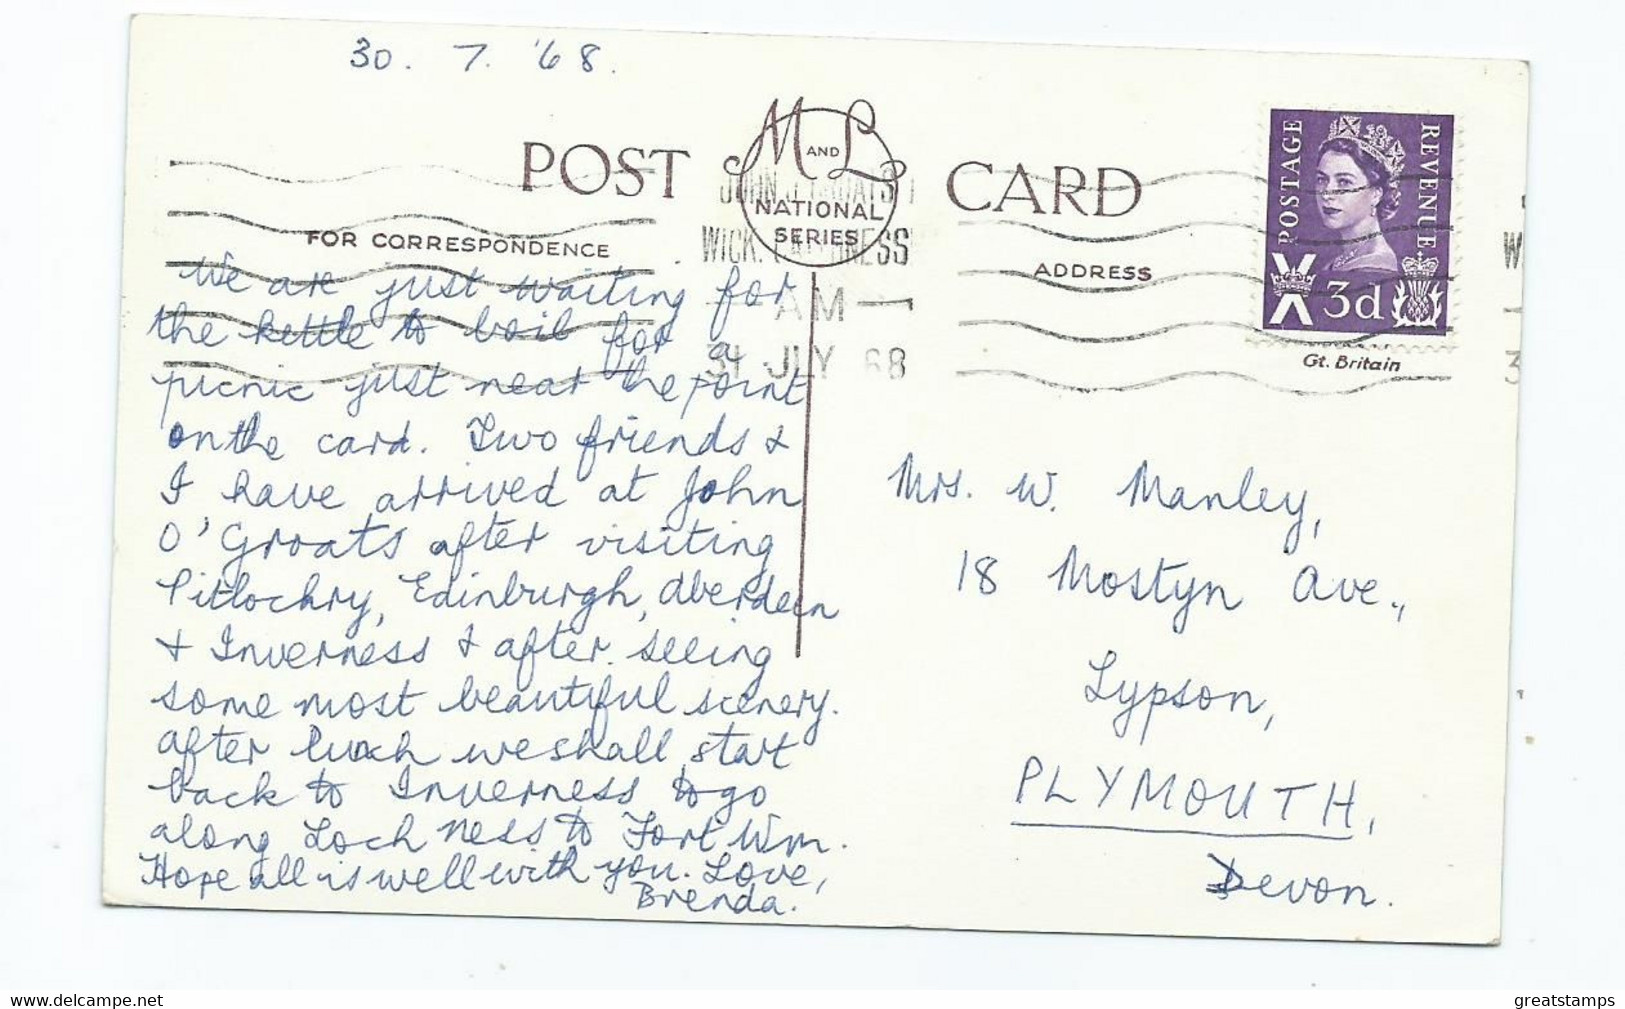 30. 7. '68.
POST CARD
M AND L
NATIONAL
SERIES
FOR CORRESPONDENCE
ADDRESS
JOHN O'GROATS
WICK. CAITHNESS
AM
31 JLY 68
POSTAGE
REVENUE
3d
Gt. Britain
We are just waiting for
the kettle to boil for a
picnic just near the point
on the card. Two friends &
I have arrived at John
O'Groats after visiting
Pitlochry, Edinburgh, Aberdeen
& Inverness & after seeing
some most beautiful scenery.
After lunch we shall start
back to Inverness to go
along Loch Ness to Fort Wm.
Hope all is well with you. Love,
Brenda.
Mrs. W. Manley,
18 Mostyn Ave.,
Lypson,
PLYMOUTH,
Devon.
www.delcampe.net
greatstamps